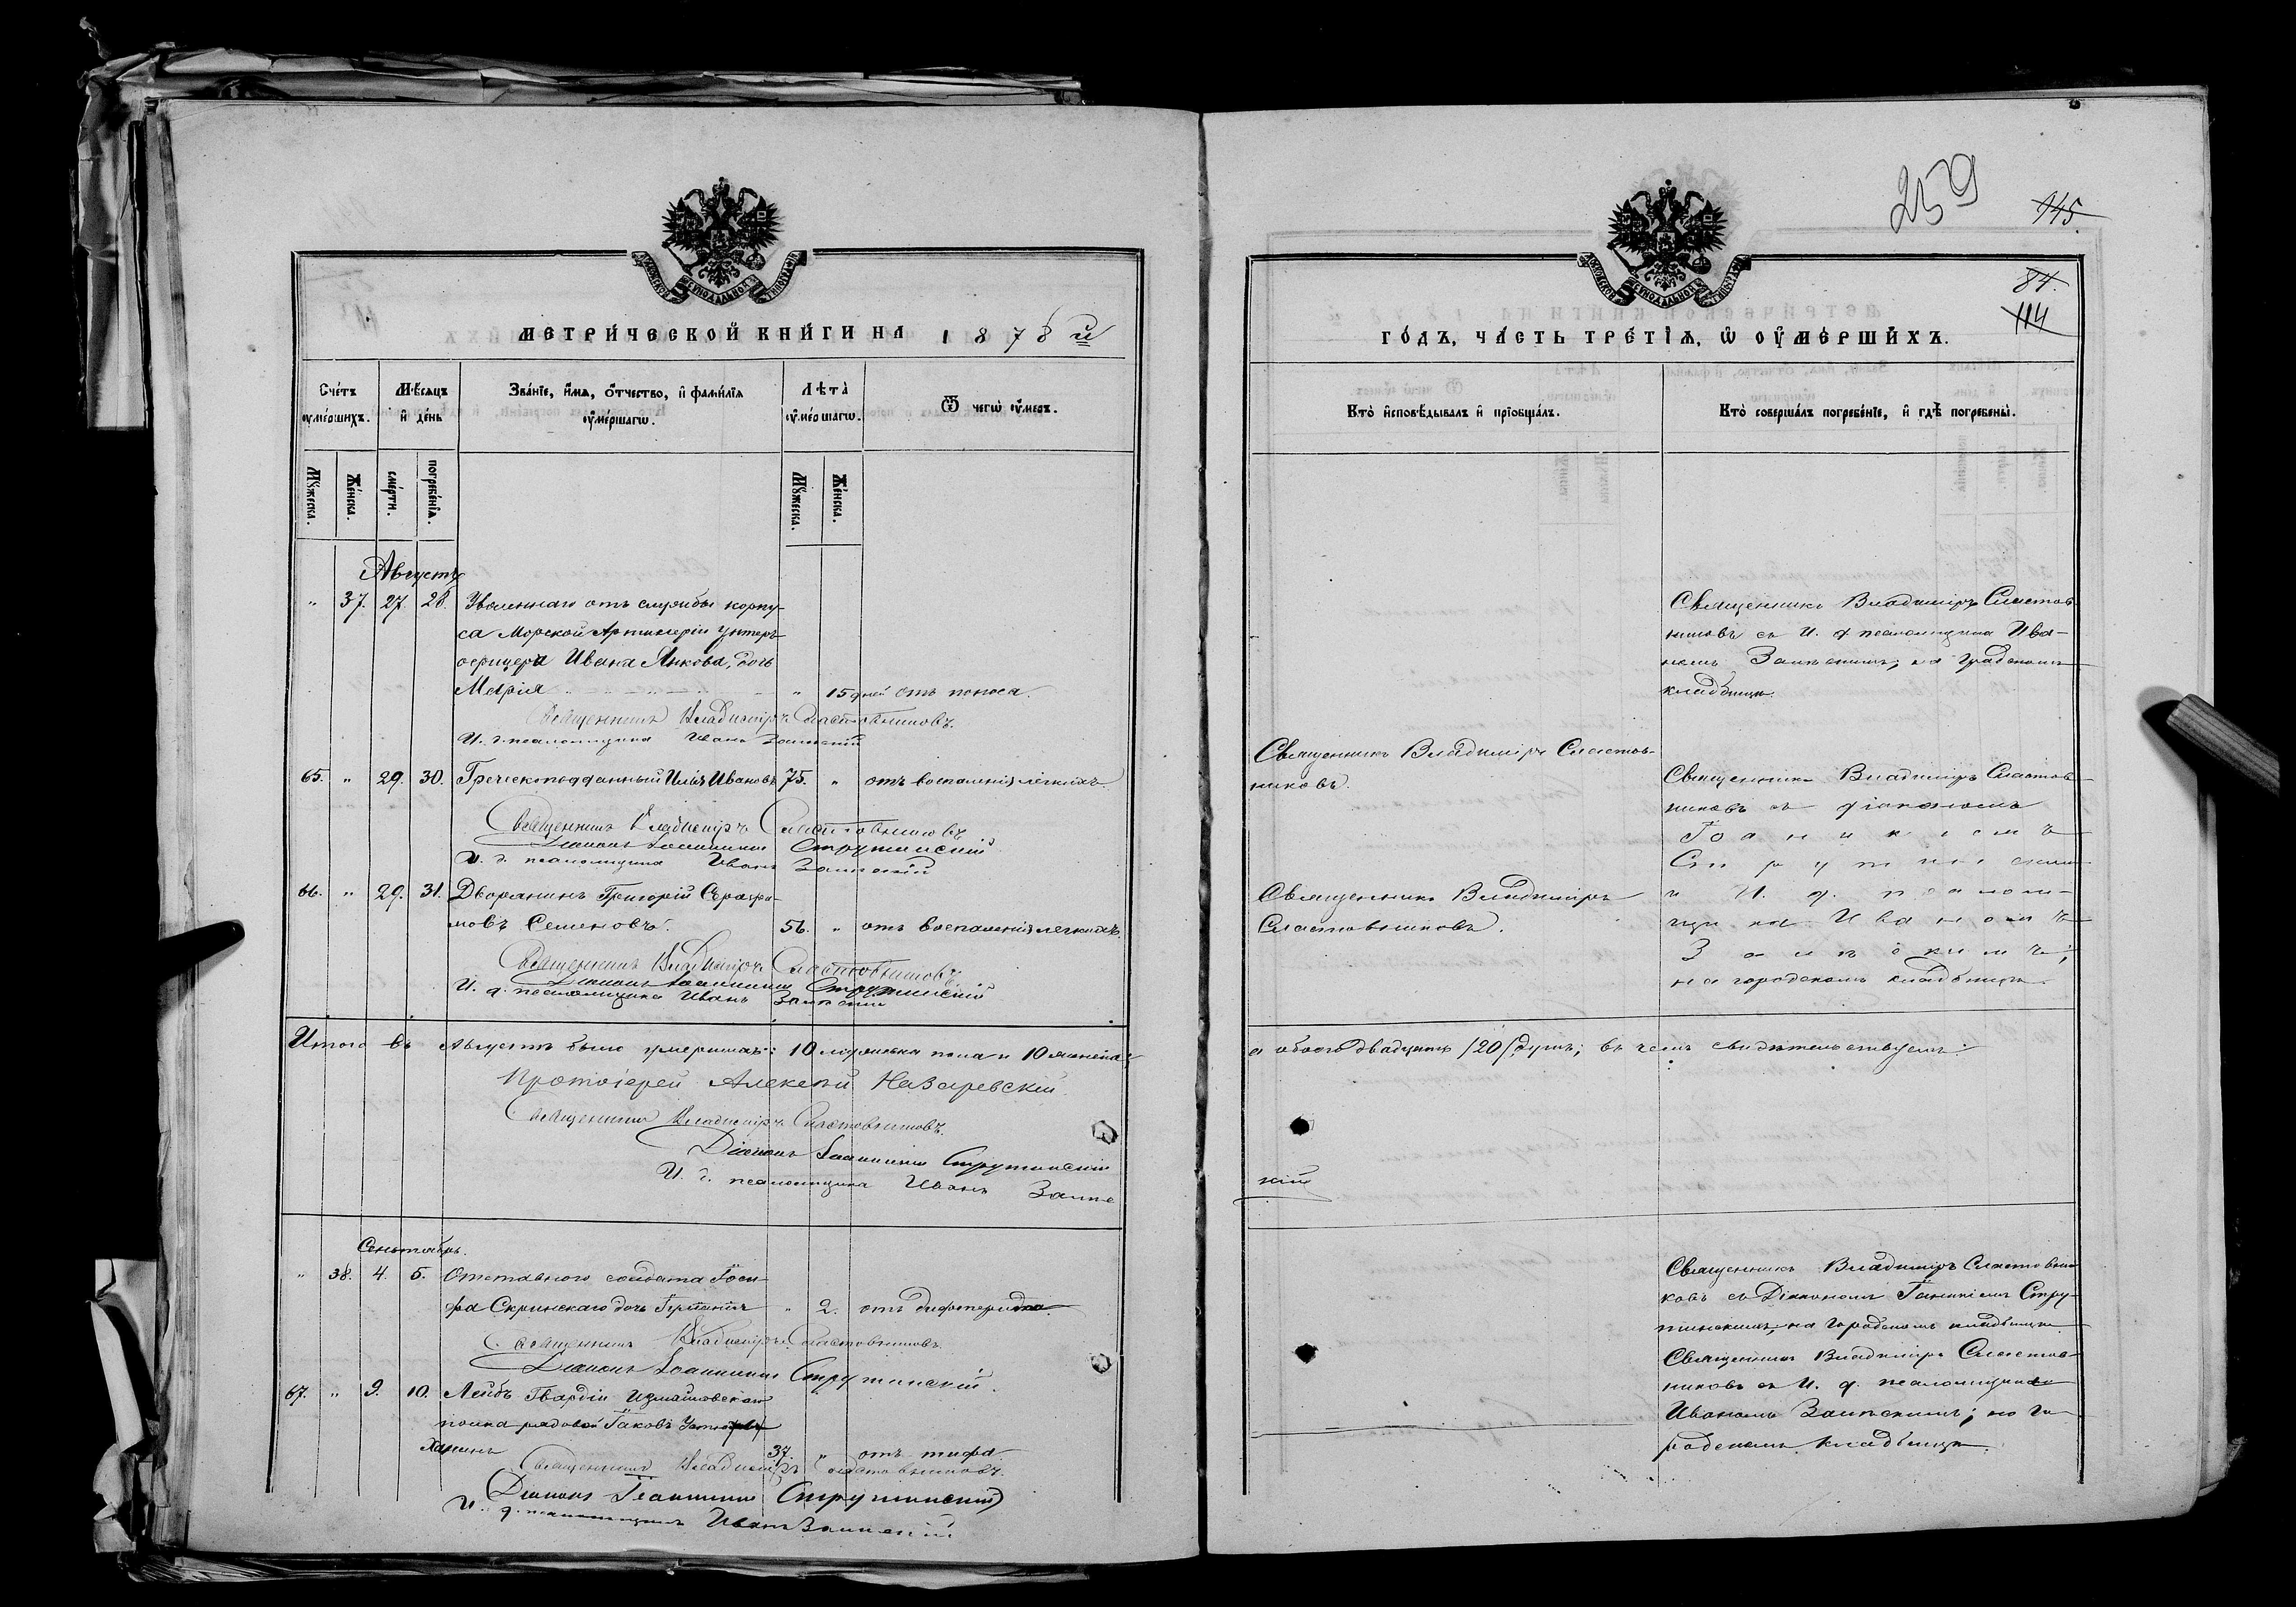 МЕТРИ́ЧЕСКОЙ КНИ́ГИ НА 1878 й
Сче́тъ оу҆ме́ршихъ.
Мѣ́сяцъ и҆ де́нь
Зва́нїе, и҆́мѧ, ѻ҆́тчество, и҆ фами́лїѧ оу҆ме́ршагѡ.
Лѣта̀ оу҆ме́ршагѡ.
Ѿ чегѡ̀ оу҆́меръ.
Мꙋ́жеска.
Же́нска.
сме́рти.
погребе́нїѧ.
Мꙋ́жеска.
Же́нска.
Августъ
" 37. 27. 28. Уволеннаго отъ службы корпу-
са Морской Артиллеріи Унтеръ-
офицера Ивана Янкова, дочь
Марія " 15 дней отъ поноса.
Священникъ Владиміръ Сластовниковъ.
И. д. псаломщика Иванъ
65. " 29. 30. Греческоподданный Илія Ивановъ 75. " отъ воспаленія легкихъ.
Священникъ Владиміръ Сластовниковъ
Діаконъ Іоанникій Струтинскій
И. д. псаломщика Иванъ
66. " 29. 31. Дворянинъ Григорій Серафи-
мовъ Семеновъ. 56. " отъ воспаленія легкихъ.
Священникъ Владиміръ Сластовниковъ
Діаконъ Іоанникій Струтинскій
И. д. псаломщика Иванъ
Итого въ Августѣ было умершихъ: 10 мужеска пола и 10 женска;
Протоіерей Алексій Назаревскій
Священникъ Владиміръ Сластовниковъ.
Діаконъ Іоанникій Струтинскій
И. д. псаломщика Иванъ
Сентябрь.
" 38. 4. 5. Отставного солдата Іоси-
фа Скринскаго дочь " 2. отъ дифтерита
Священникъ Владиміръ Сластовниковъ.
Діаконъ Іоанникій Струтинскій.
67. " 9. 10. Лейбъ Гвардіи Измайловскаго
полка рядовой Іаковъ
37. " отъ тифа
Священникъ Владиміръ Сластовниковъ.
Діаконъ Іоанникій Струтинскій
И. д. псаломщика Иванъ
259
115.
84.
114
ГО́ДЪ, ЧА́СТЬ ТРЕ́ТІѦ, Ѡ҆ ОУ҆МЕ́РШИХЪ.
Кто̀ и҆сповѣ́дывалъ и҆ прїѡбща́лъ.
Кто̀ соверша́лъ погребе́нїе, и҆ гдѣ̀ погребены̀.
Священникъ Владиміръ Сластов-
никовъ съ И. д. псаломщика Ива-
номъ на градскомъ
кладбищѣ.
Священникъ Владиміръ Сластов-
никовъ.
Священникъ Владиміръ Сластов-
никовъ съ діакономъ
Іоанникіемъ
Струтинскимъ
и И. д. псалом-
щика Иваномъ
на городскомъ кладбищѣ.
Священникъ Владиміръ
Сластовниковъ.
а обоего двадцать /20/ душъ; въ чемъ свидѣтельствуемъ:
кій
Священникъ Владиміръ Сластовни-
ковъ съ Діакономъ Іоанникіемъ Стру-
тинскимъ, на городскомъ кладбищѣ.
Священникъ Владиміръ Сластов-
никовъ съ И. д. псаломщика
Иваномъ на го-
родскомъ кладбищѣ.